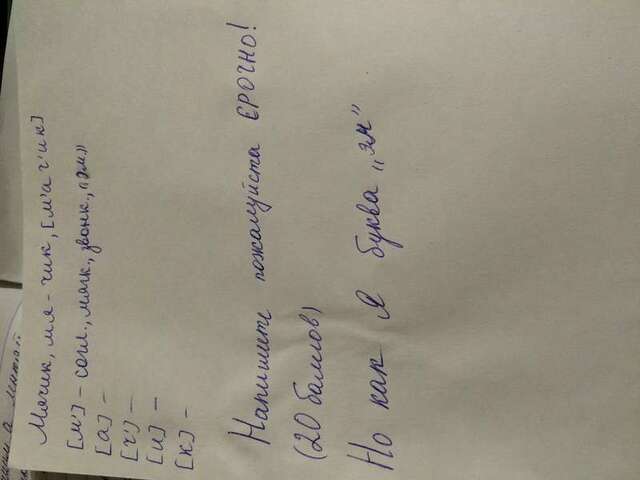 а лентой
Мячик, мя-чик, [м'ач'ик]
[м'] – согл., мягк., звонк., "эм"
[а] –
[ч'] –
[и] –
[к] –
Напишите пожалуйста СРОЧНО!
(20 баллов)
Но как я буква "эм"